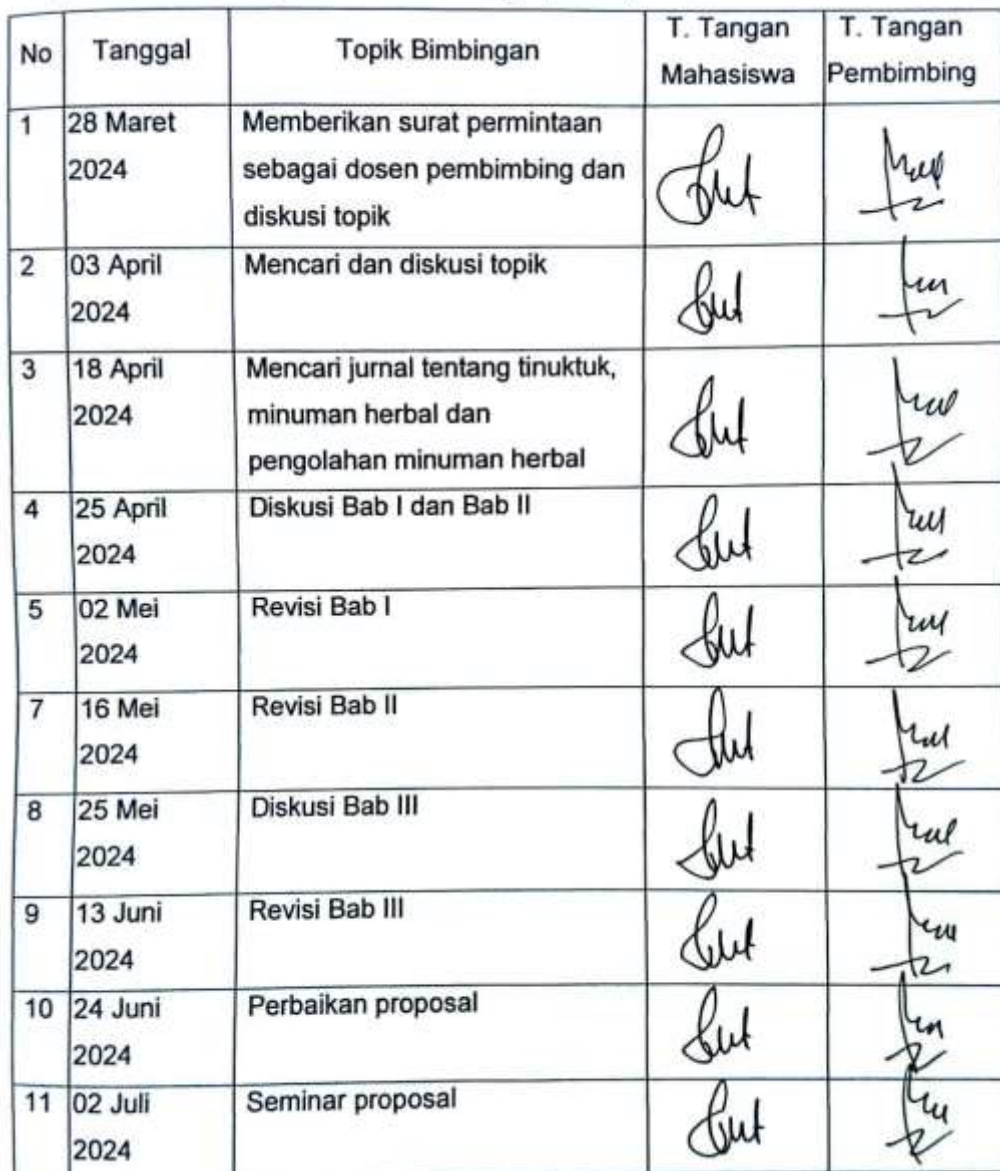 No Tanggal Topik Bimbingan T. Tangan Mahasiswa T. Tangan Pembimbing
1 28 Maret Memberikan surat permintaan
2024 sebagai dosen pembimbing dan
diskusi topik
2 03 April Mencari dan diskusi topik
2024
3 18 April Mencari jurnal tentang tinuktuk,
2024 minuman herbal dan
pengolahan minuman herbal
4 25 April Diskusi Bab I dan Bab II
2024
5 02 Mei Revisi Bab I
2024
7 16 Mei Revisi Bab II
2024
8 25 Mei Diskusi Bab III
2024
9 13 Juni Revisi Bab III
2024
10 24 Juni Perbaikan proposal
2024
11 02 Juli Seminar proposal
2024